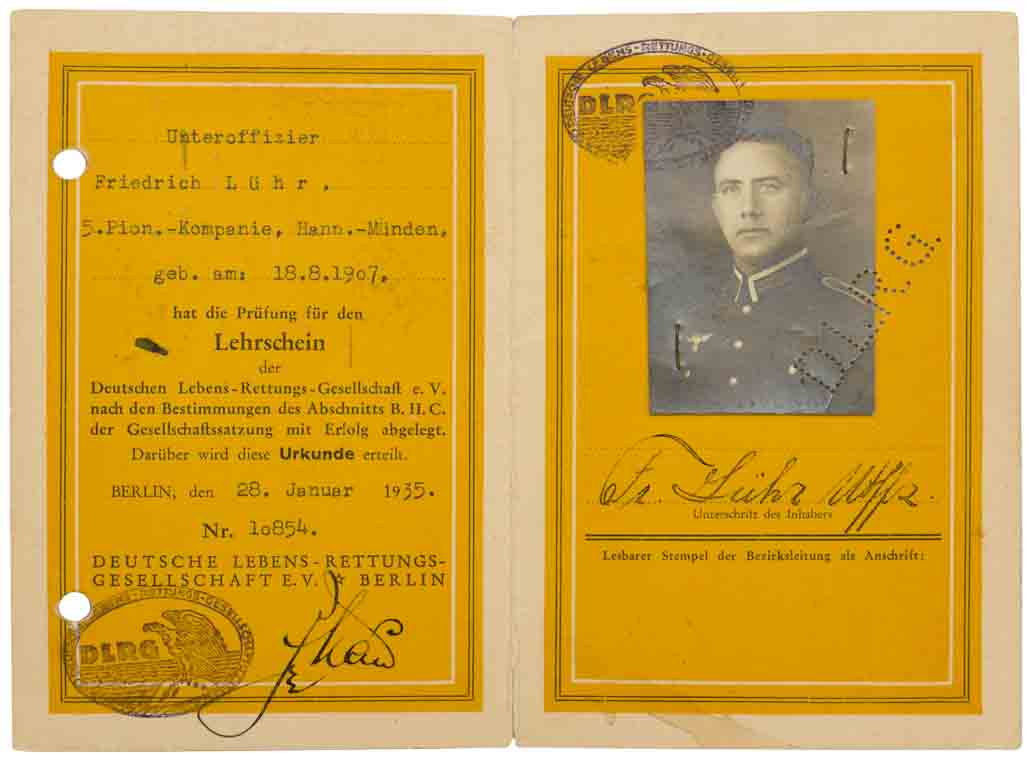 Unteroffizier
Friedrich Lühr,
5.Pion.-Kompanie, Hann.-Münden,
geb. am: 18.8.1907,
hat die Prüfung für den
Lehrschein
der
Deutschen Lebens-Rettungs-Gesellschaft e. V.
nach den Bestimmungen des Abschnitts B. II. C.
der Gesellschaftssatzung mit Erfolg abgelegt.
Darüber wird diese Urkunde erteilt.
BERLIN, den 28. Januar 1935.
Nr. 10854.
DEUTSCHE LEBENS-RETTUNGS-
GESELLSCHAFT E.V. ★ BERLIN
DEUTSCHE LEBENS-RETTUNGS-GESELLSCHAFT
DLRG
DEUTSCHE LEBENS-RETTUNGS-GESELLSCHAFT
DLRG
DLRG
Fr. Lühr Uffz.
Unterschrift des Inhabers
Lesbarer Stempel der Bezirksleitung als Anschrift: